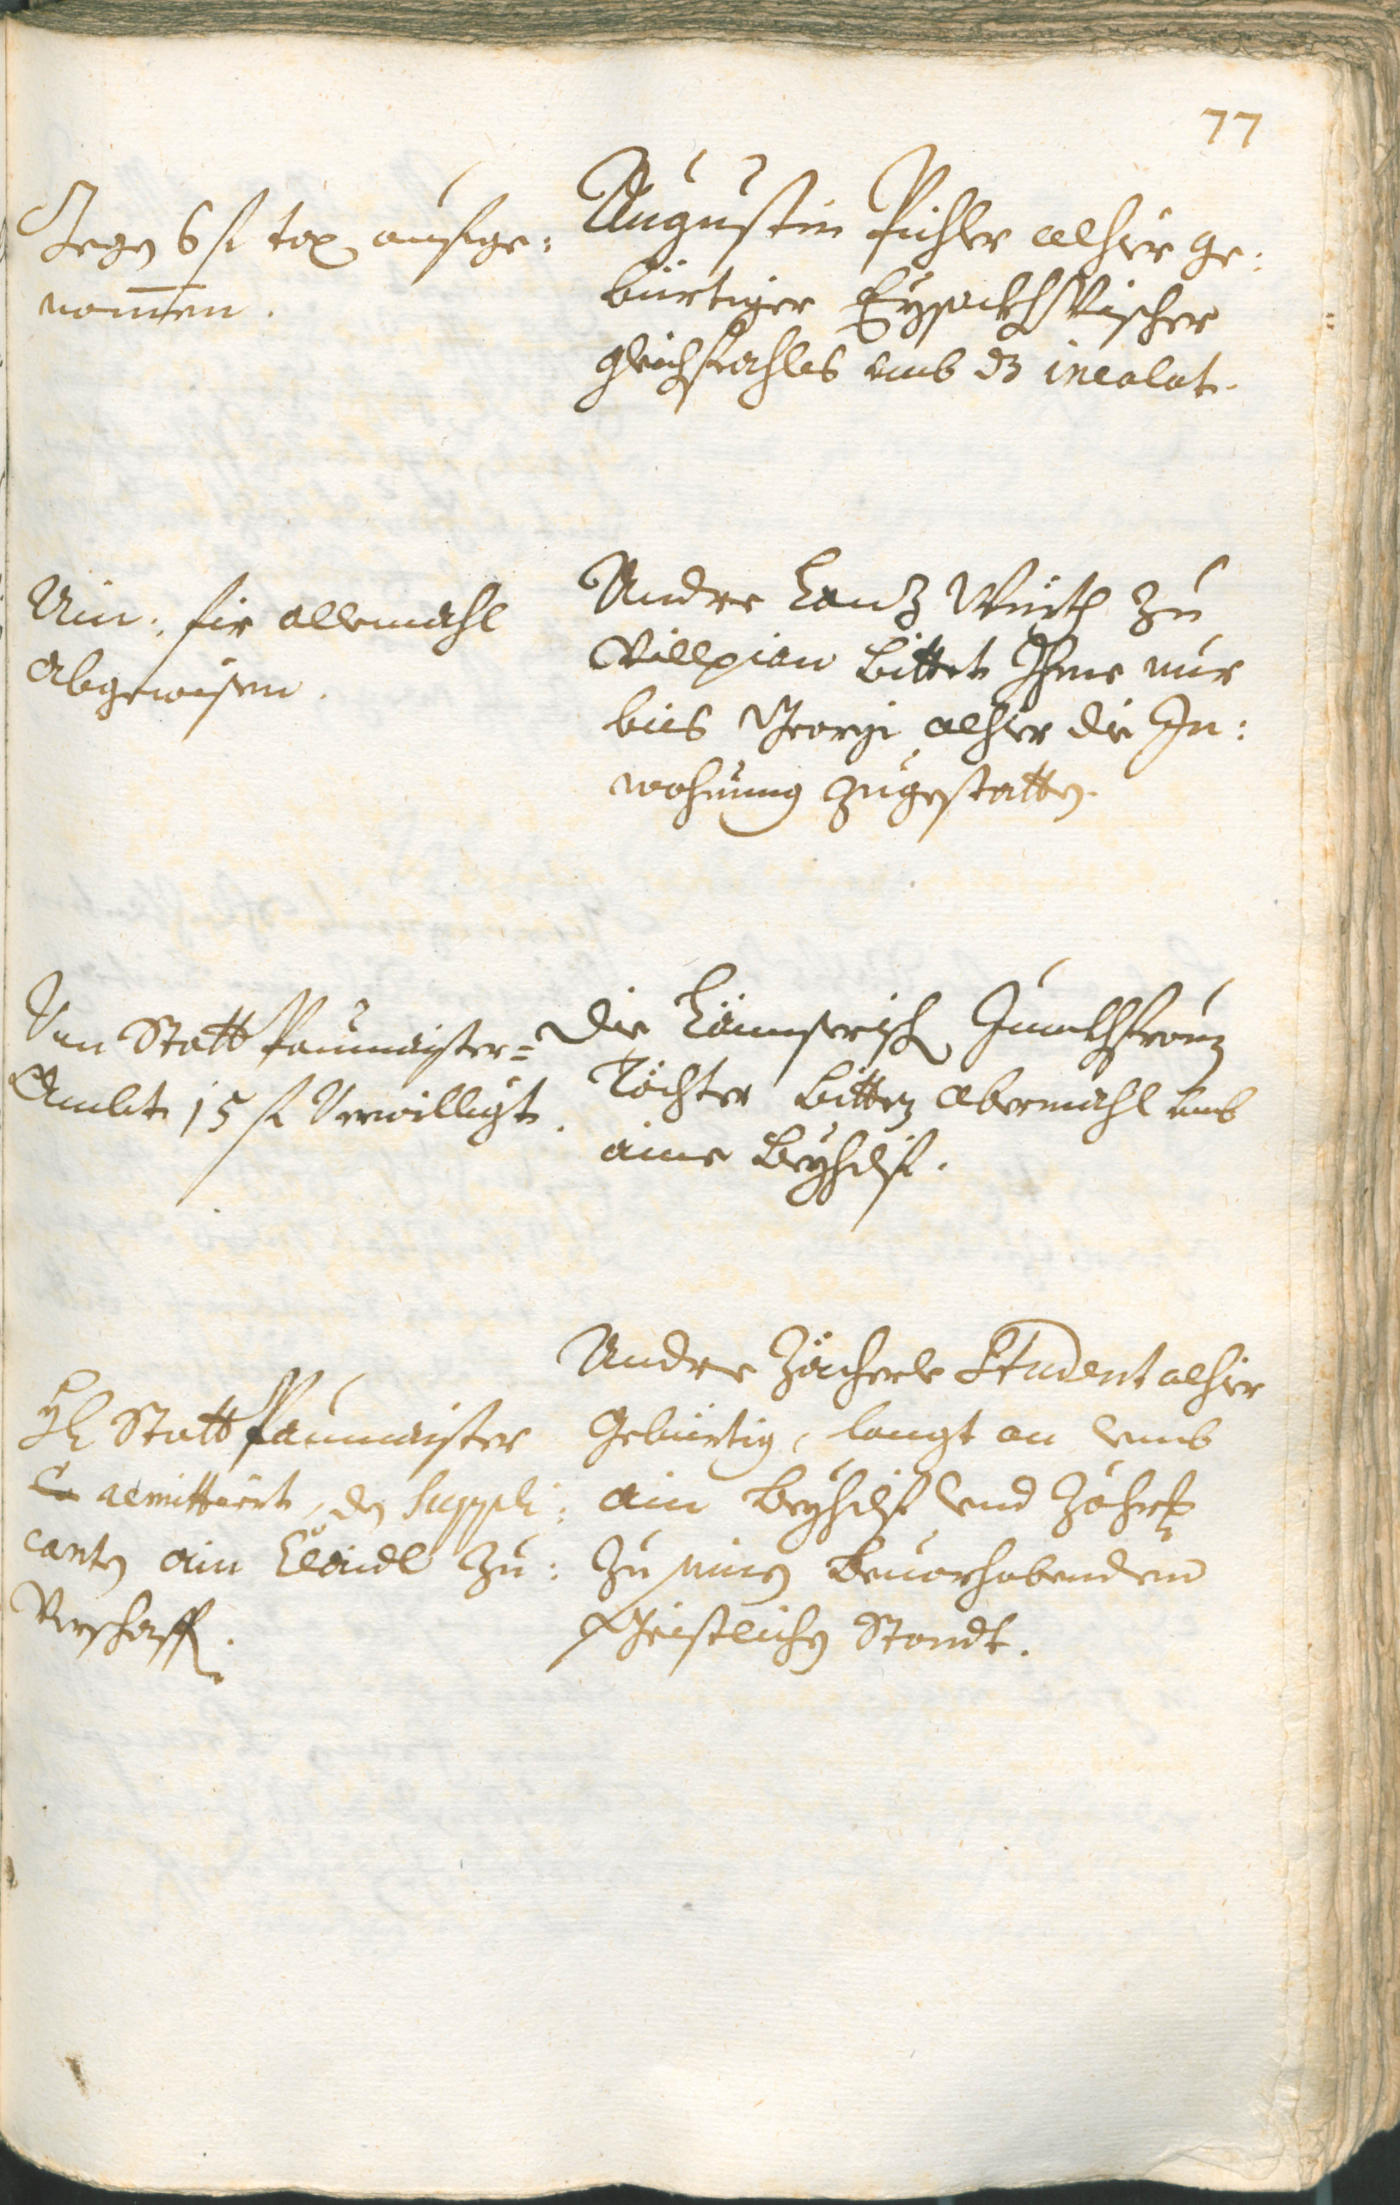 77
Gegen 6 fl tax aufge:
nom̄en.
Augustin Pichler alhier ge:
bürtiger Eysackh Vischer
gleichfahls umb dz incolat.
Ain: für allemahl
abgewisen.
Andre Lanz Würth zu
Villpian bittet Ihme nur
biis Georgi alhier die In:
wohnung zugestatten.
Von Statt Paumaister=
Ambt 15 fl Verwilligt.
Die Junckhfrauen
Töchter bitten abermahl umb
aine Beyhilf.
Hr Statt Paumaister
admittiert, den Suppli:
canten ain Claidl zu:
Verschaffen.
Andre Zächerle Student alhier
Gebürtig, langt an umb
ain Beyhilf und
zu seinen bevorhabenden
Geistlichen Standt.